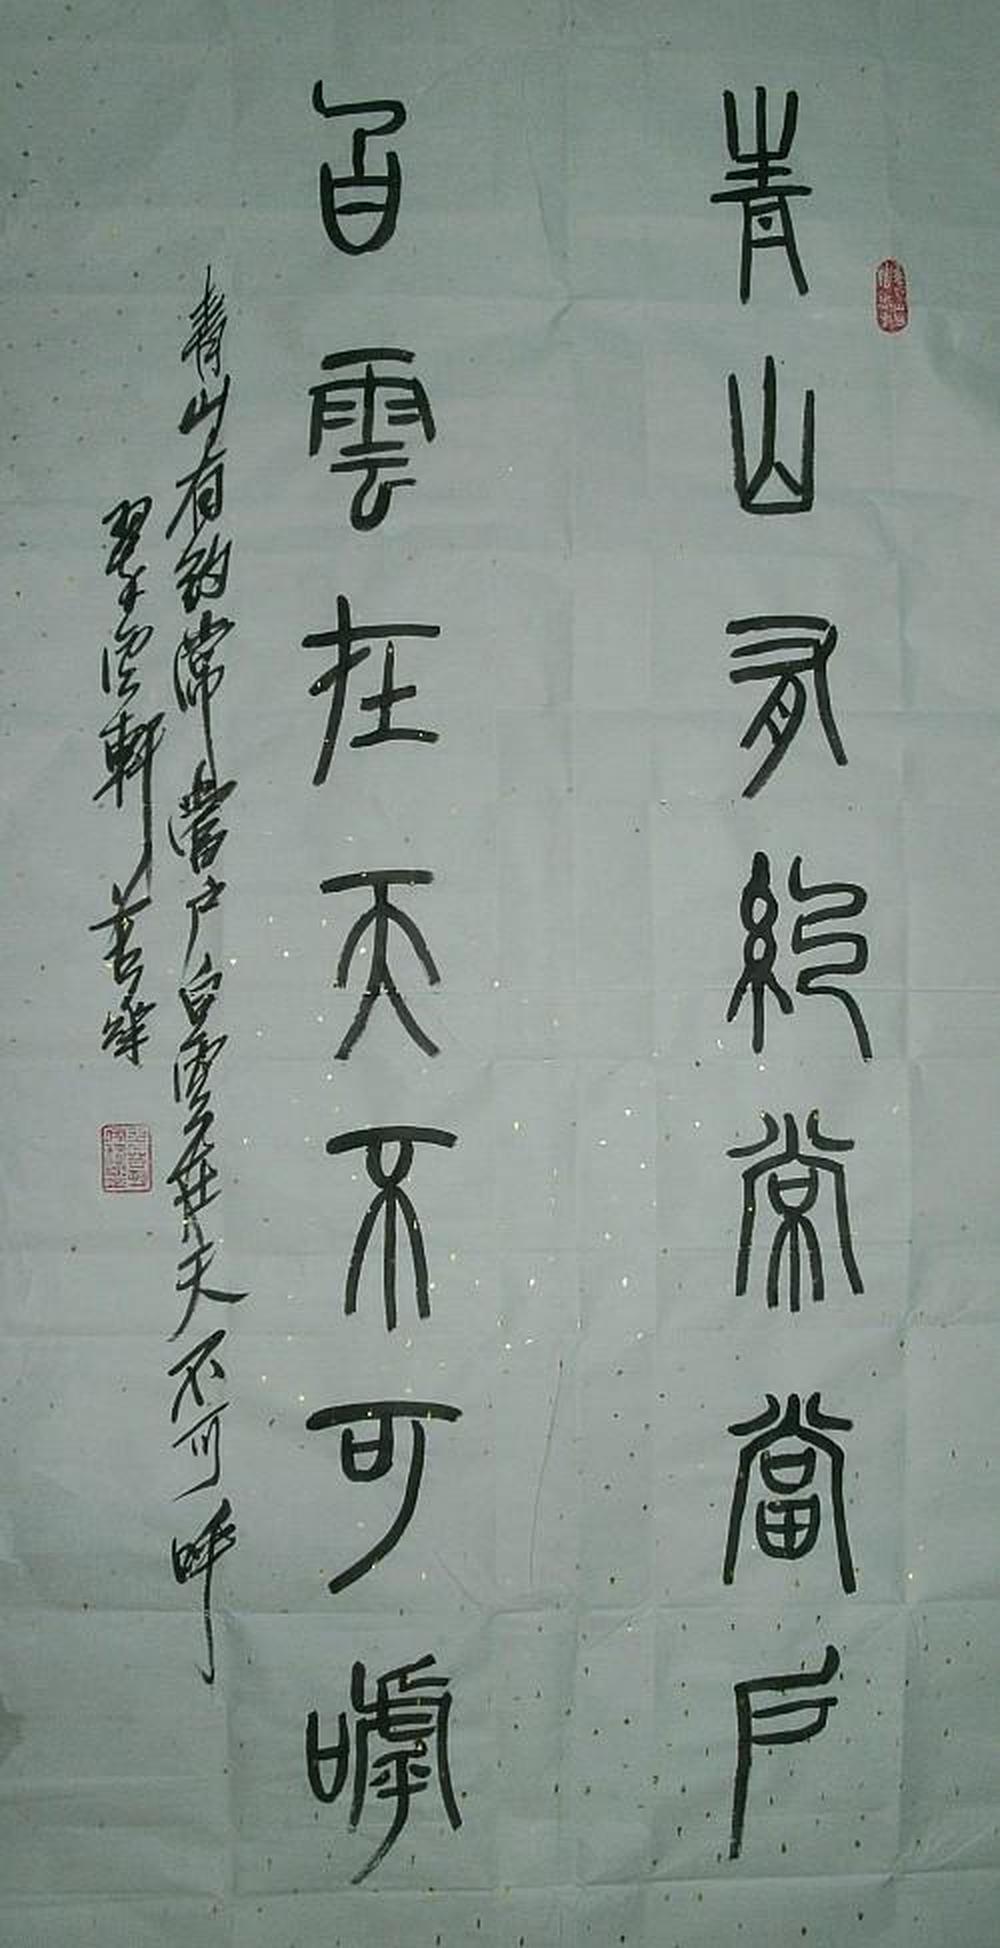 青山有約常當戶
白雲在天不可嘑
青山有約常當戶白雲在天不可呼
翠雲軒